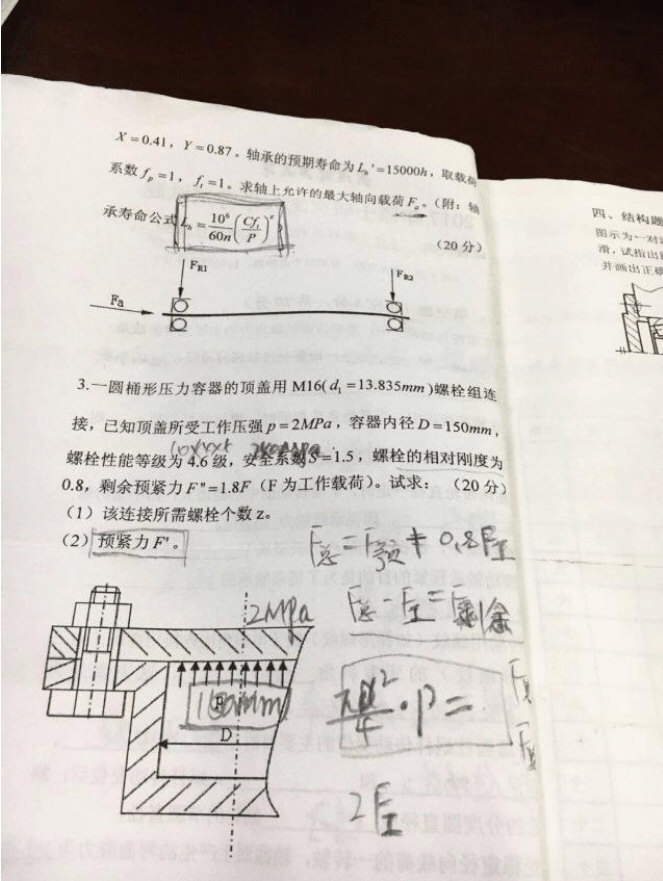 X=0.41，Y=0.87。轴承的预期寿命为L_h'=15000h，取载荷
系数f_p=1，f_t=1。求轴上允许的最大轴向载荷F_a。(附：轴
承寿命公式L_h=10⁶/60n(Cf_t/P)^ε
(20分)
F_R1
F_R2
Fa
3.一圆桶形压力容器的顶盖用M16(d₁=13.835mm)螺栓组连
接，已知顶盖所受工作压强p=2MPa，容器内径D=150mm，
螺栓性能等级为4.6级，安全系数S=1.5，螺栓的相对刚度为
0.8，剩余预紧力F"=1.8F（F为工作载荷）。试求：（20分）
（1）该连接所需螺栓个数z。
（2）预紧力F'。
F总=F预+0.8F工
F总-F工=F剩余
2MPa
150mm
D
πd²/4·P=
2F工
四、结构题
图示为一对
滑，试指出
并画出正确